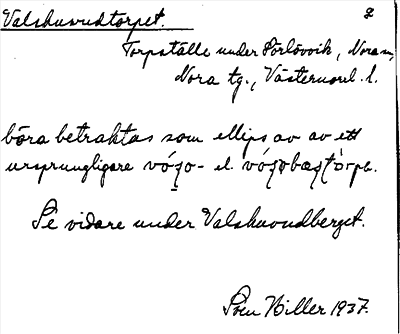 Valshuvudtorpet. 2
Torpställe under Förlövvik, Nora sn,
Nora tg., Västernorrl. l.
böra betraktas som ellips av av ett
ursprungligare - el.
Se vidare under Valshuvudberget.
Sven Hiller 1937.